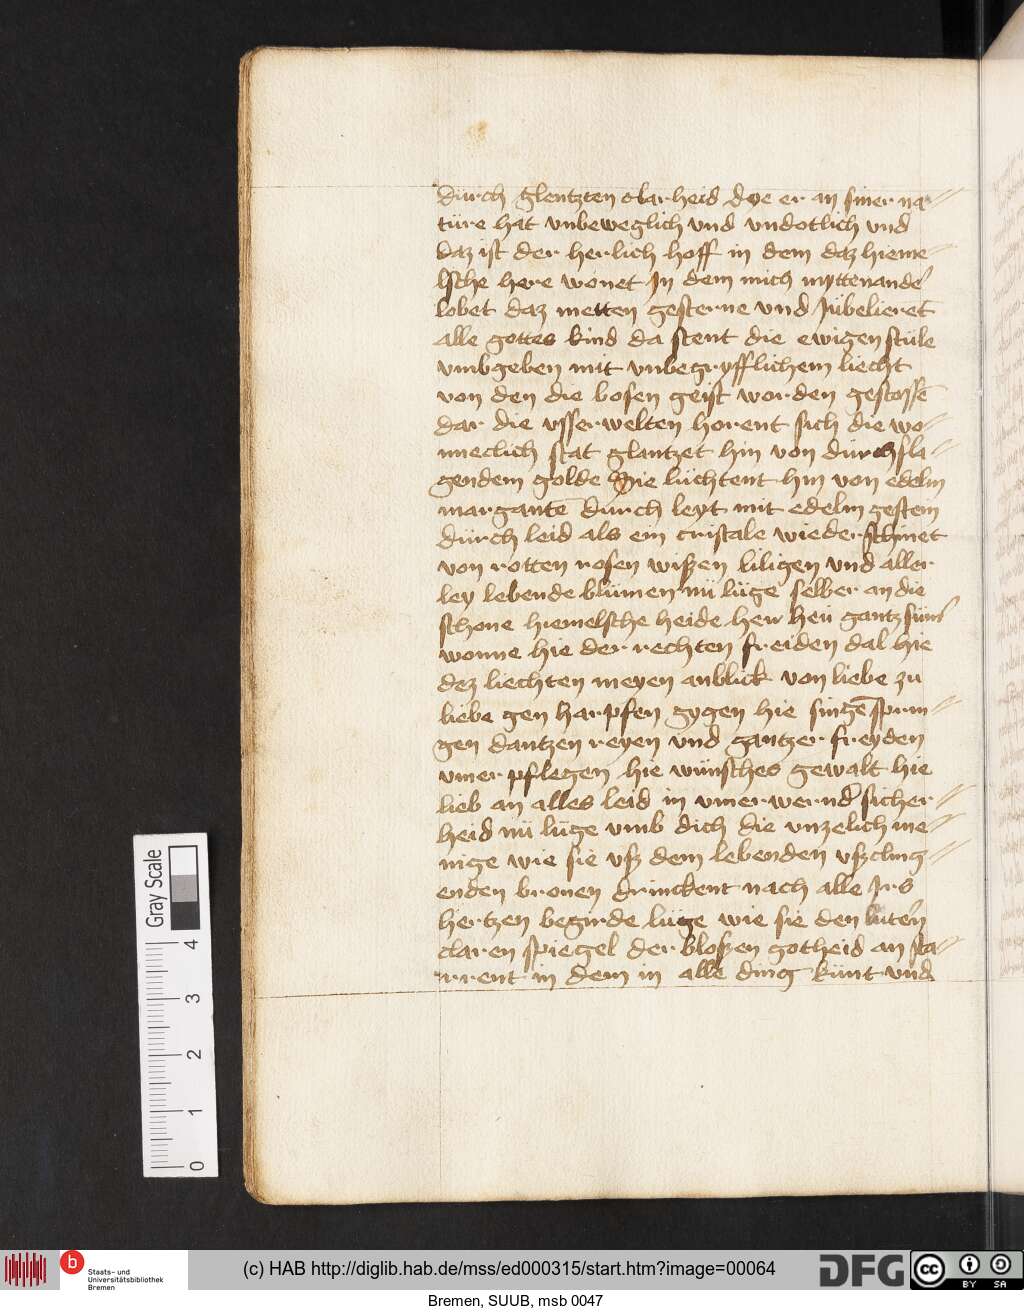 dürch glentzten clarheid doe er an siner na⸗
türe hat vnbeweglich vnd vndotlich vnd
daz ist der herlich hoff in dem daz hieme⸗
lsche here wonet Jn dem mich myttenande͛
lobet daz metten gesterne vnd Jübelieret
alle gottes kind da stent die ewigen stüle
vmbgeben mit vnbegryfflichem liecht
von den die bosen geist worden gestossē
dar die vsserwelten horent sich die wo⸗
nneclich stat glantzet hin von dürch sla⸗
gendem golde Die lüchtent hin von edelm
margantē dürch leyt mit edelm gestein
dürch leid als ein cristale wiederschinet
von rotten rosen wißen liligen vnd aller
ley lebende blümen nü lüge selber an die
schone hiemelsche heide hew heü gantz süm͛
wonne hie der rechten freiden dal hie
dez liechten meyen anblick von liebe zu
liebe gen harpfen gygen hie singē sprin⸗
gen dantzen reyen vnd gantzer freyden
vmer pflegen hie wünsches gewalt hie
lieb an alles leid in vmer wernd͛ sicher⸗
heid nü lüge vmb dich die vnzelich me⸗
nige wie sie vsz dem lebenden vszcling⸗
enden bronen drinckent nach alle Jrs
hertzen begirde lüge wie sie den lutern
claren spiegel der bloßen gotheid an sta⸗
rrent in dem in alle ding künt vnd
Gray Scale
4
3
2
1
0
b
Staats- und
Universitätsbibliothek
Bremen
(c) HAB http://diglib.hab.de/mss/ed000315/start.htm?image=00064
DFG
cc
BY SA
Bremen, SUUB, msb 0047